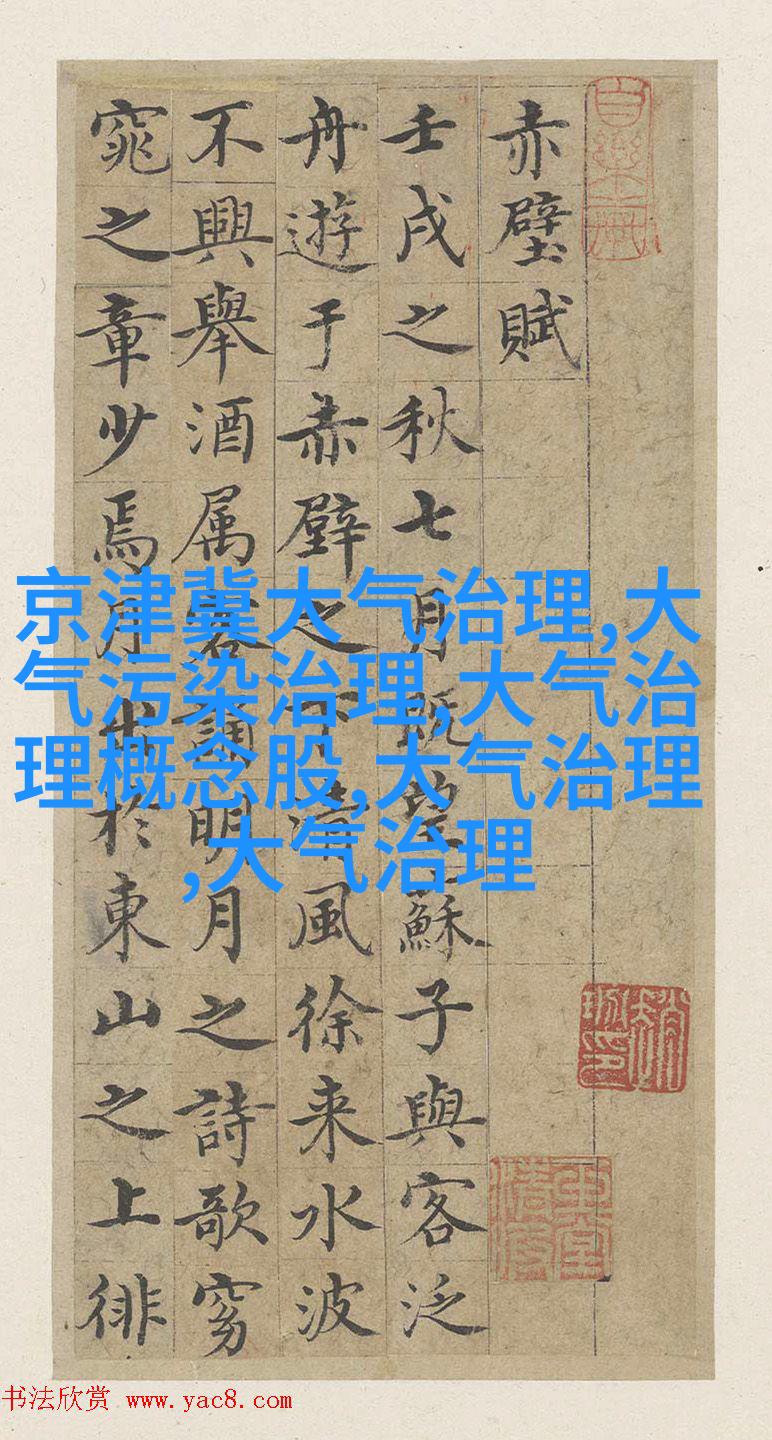 赤壁賦
壬戌之秋七月既望蘇子與客泛
舟遊于赤壁之下清風徐来水波
不興舉酒属客誦明月之詩歌窈
窕之章少焉月出於東山之上徘
京津冀大气治理,大
气污染治理,大气治
理概念股,大气治理
,大气治理
书法欣赏 www.yac8.com